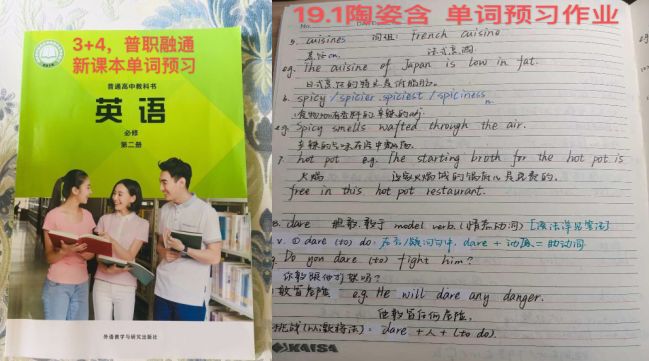 3+4,普职融通
新课本单词预习
普通高中教科书
英语
必修
第二册
外语教学与研究出版社
19.1陶姿含 单词预习作业
No.
5. cuisines 词组: french cuisine
烹饪cn. 法式烹调
eg. The cuisine of Japan is low in fat.
日式烹饪的特点是低脂肪。
6. spicy / spicier spiciest / spiciness n.
eg Spicy smells wafted through the air.
7. hot pot e.g. The starting broth for the hot pot is
火锅 这家火锅城的锅底儿是免费的.
free in this hot pot restaurant.
8. dare 胆敢,敢于 model verb. (情态动词) [该法详见笔法]
v. ① dare (to) do: 否/疑问句中, dare + 动原 = 助动词
Do you dare (to) fight him?
你敢跟他打架吗?
敢冒危险 e.g. He will dare any danger.
他敢冒任何危险.
挑战(以激将法): dare + 人 + (to do).
KAISA